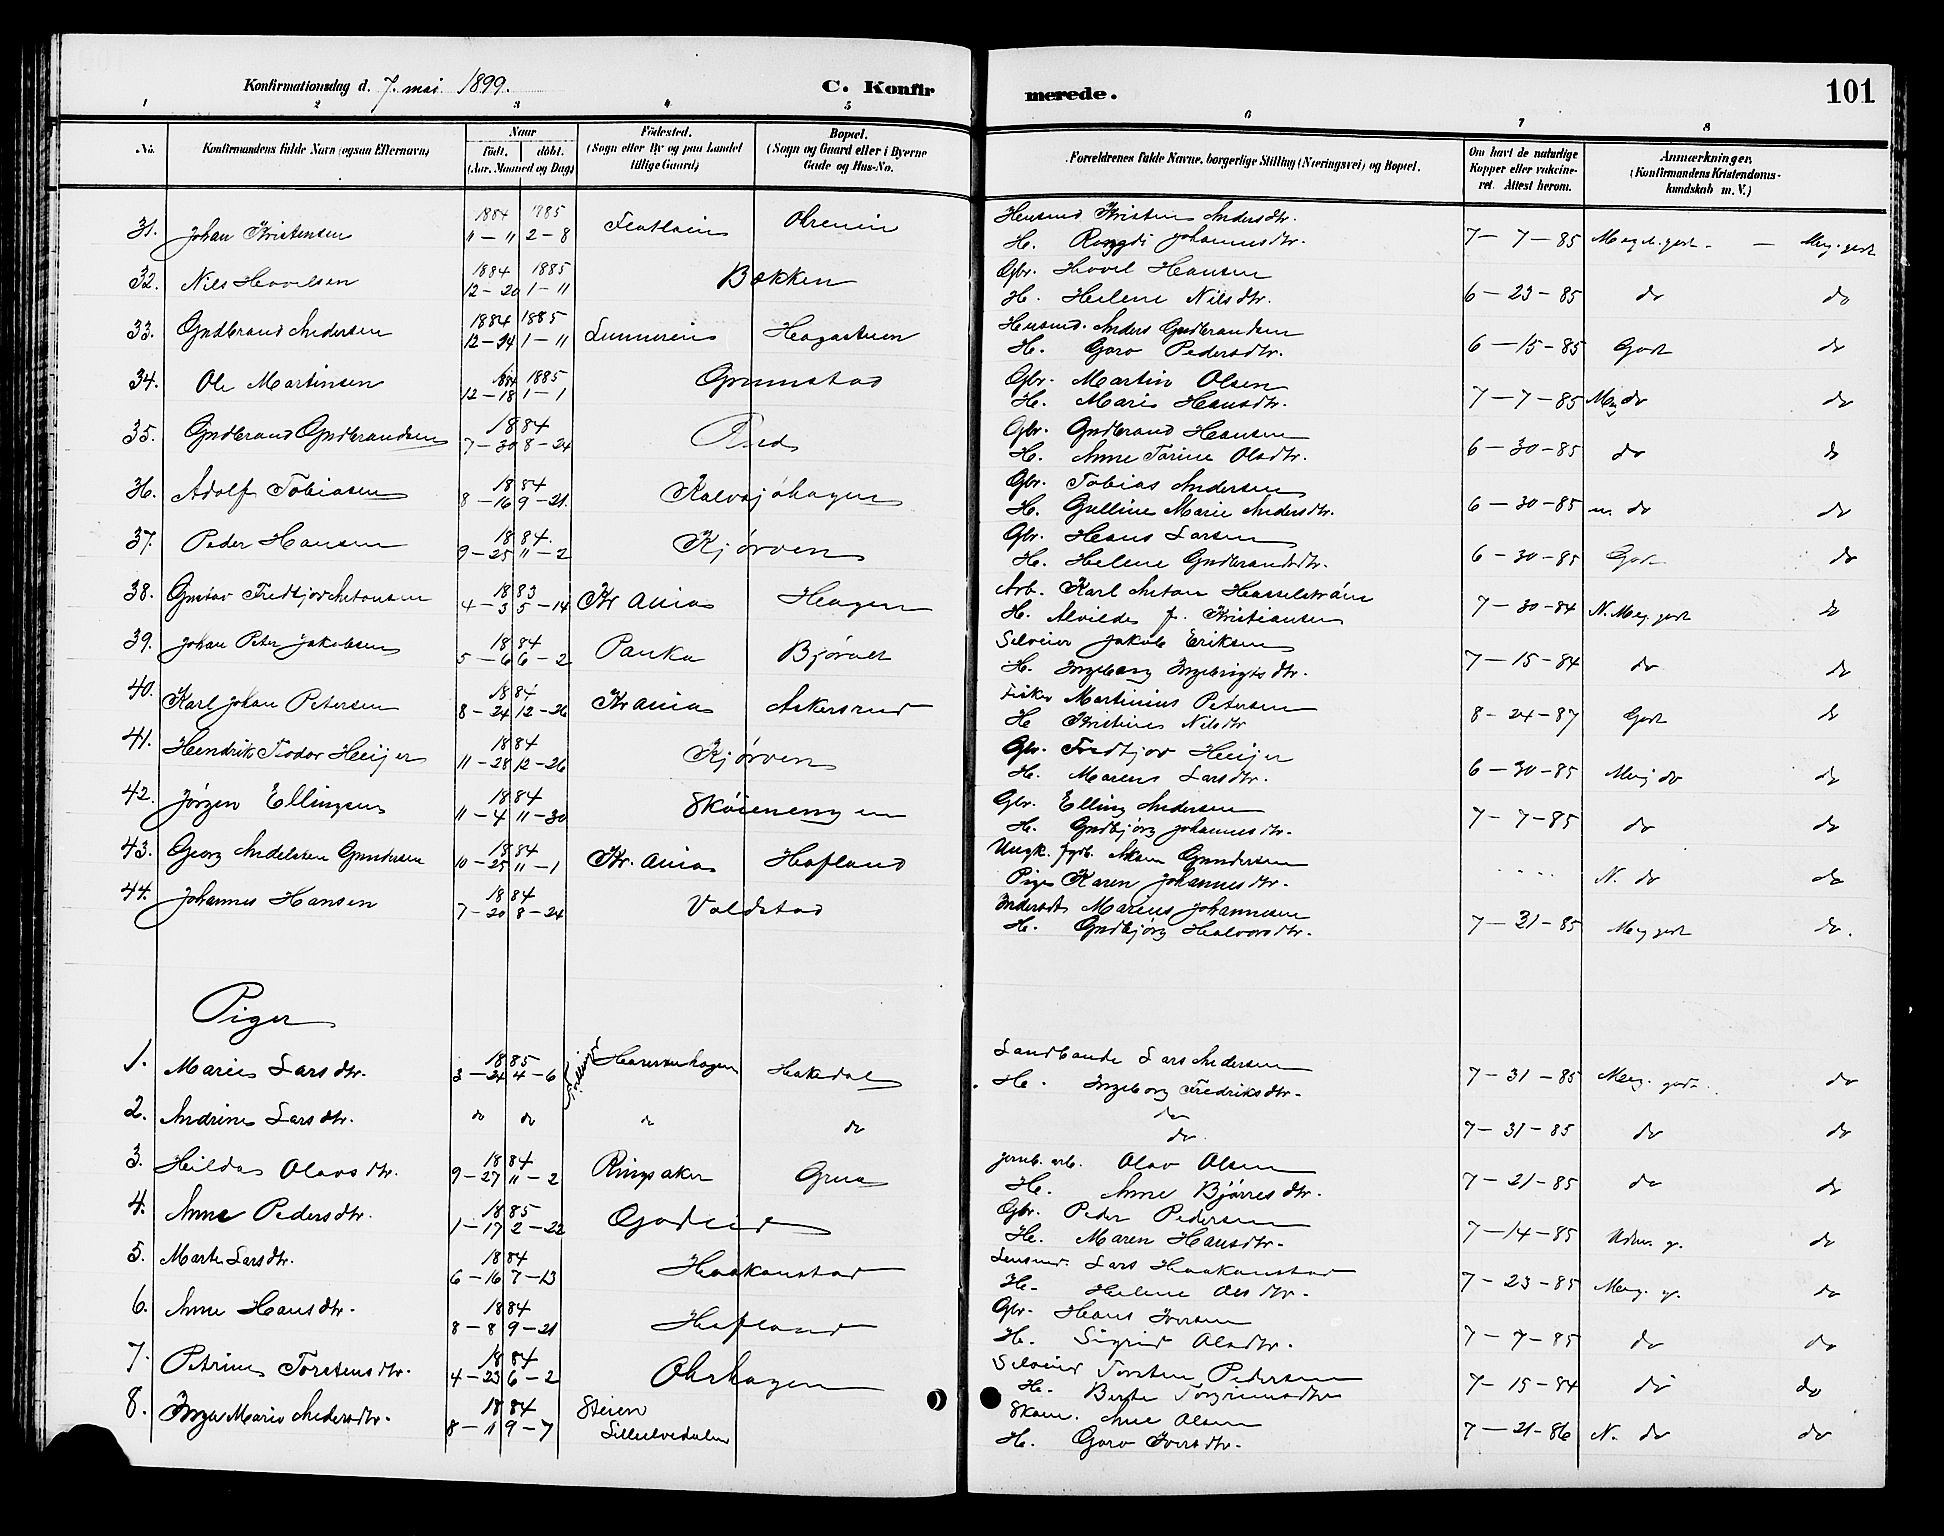 Konfirmationsdag d. 7. mai 1899. C. Konfirmerede. 101
1 2 3 4 5 6 7 8
No. Konfirmandens fulde Navn (ogsaa Efternavn) Naar Födt. döbt. (Aar, Maaned og Dag) Födested. (Sogn eller By og paa Landet tillige Gaard) Bopæl. (Sogn og Gaard eller i Byerne Gade og Hus-No. Forældrenes fulde Navne, borgerlige Stilling (Næringsvei) og Bopæl. Om havt de naturlige Kopper eller vakcineret. Attest herom. Anmærkninger. (Konfirmandens Kristendomskundskab m. V.)
31. Johan Kristensen 1884 11–11 1885 2–8 Husmd Kristen Andersdtr.
H. Johannesdtr. 7–7–85 Meg. godt
32. Nils Hovelsen 1884 12–20 1885 1–11 Bækken Gbr. Hovel Hansen
H. Helene Nilsdtr. 6–23–85 do do
33. Gudbrand Andersen 1884 12–24 1885 1–11 Lunnereie Hagastuen Husmd. Anders Gudbrandsen
H. Goro Pedersdtr. 6–15–85 Godt do
34. Ole Martinsen 1884 12–18 1885 1–1 Grinnstad Gbr. Martin Olsen
H. Mari Hansdtr. 7–7–85 Meg do do
35. Gudbrand Gudbrandsen 1884 7–30 8–24 Gbr. Gudbrand Hansen
H. Anne Torine Olsdtr. 6–30–85 do do
36. Adolf Tobiasen 1884 8–16 9–21. Kalvsjøhagen Gbr. Tobias Andersen
H. Gulline Marie Andersdtr. 6–30–85 m. do do
37. Peder Hansen 1884. 9–25 11–2 Kjørven Gbr. Hans Larsen
H. Helene Gudbrandsdtr. 6–30–85 Godt do
38. Gustav Fredtjov Antonsen 1883 4–3 5–14 Kr.ania Hagen Arb. Karl Anton Hasselstrøm
H. Alvilde f. Kristiansen 7–30–84 N. Meg. godt do
39. Johan Peter Jakobsen 1884 5–6 6–2 Pauka Jakob Eriksen
H. Ingeborg Ingebrigtsdtr. 7–15–84 do do
40. Karl Johan Petersen 1884 8–24 12–26 Kr.ania Askersrud Martinius Petersen
H Kristine Nilsdtr 8–24–87 Godt do
41. Hendrik Teodor Heijer 1884 11–28 12–26 Kjørven Gbr. Fredtjov Heijer
H. Maren Larsdtr. 6–30–85 Meg do do
42. Jørgen Ellingsen 1884 11–4 11–30 Skøienengen Gbr. Elling Andersen
H. Gudbjørg Johannesdtr. 7–7–85 do do
43. Georg Andelsten Gundersen 1884 10–25 11–1 Kr.ania Hofland Ungk. Gundersen
Pige Karen Johannesdtr. . . . . N. do do
44. Johannes Hansen 1884 7–20 8–24 Voldstad Inderst Marius Johannesen
H. Gudbjørg Halvorsdtr. 7–31–85 Meg godt do.
Piger
1. Marie Larsdtr. 1885 3–24 4–6 Hakedal Landbande Lars Andersen
H. Ingeborg Fredriksdtr. 7–31–85 Meg. godt do
2. Andrine Larsdtr. do do do do do
do. 7–31–85 do do
3. Hilda Olavsdtr. 1884 9–27 11–2 Ringsaker Grua jernb. arb. Olav Olsen
H. Anne Bjørresdtr. 7–21–85 do do
4. Anne Pedersdtr. 1885 1–17 2–22 Godlid Gbr. Peder Pedersen
H. Maren Hansdtr. 7–14–85 Udm. g. do
5. Marte Larsdtr. 1884 6–16 7–13 Haakenstad Lensmd. Lars Haakenstad
H. Helene Olsdtr. 7–23–85 Meg. g. do
6. Anne Hansdtr. 1884 8–8 9–21 Hofland Gbr. Hans Iversen
H. Sigrid Olsdtr. 7–7–85 do do
7. Petrine Torstensdtr. 1884 4–23 6–2 Ohrhagen Torsten Pedersen
H. Berte Torgrimsdtr 7–15–84 do do
8. Inga Marie Andersdtr. 1884 8–11 9–7 Steien
Lilleelvedalen Skom. Olsen
H. Goro Iversdtr. 7–21–86 N. do do